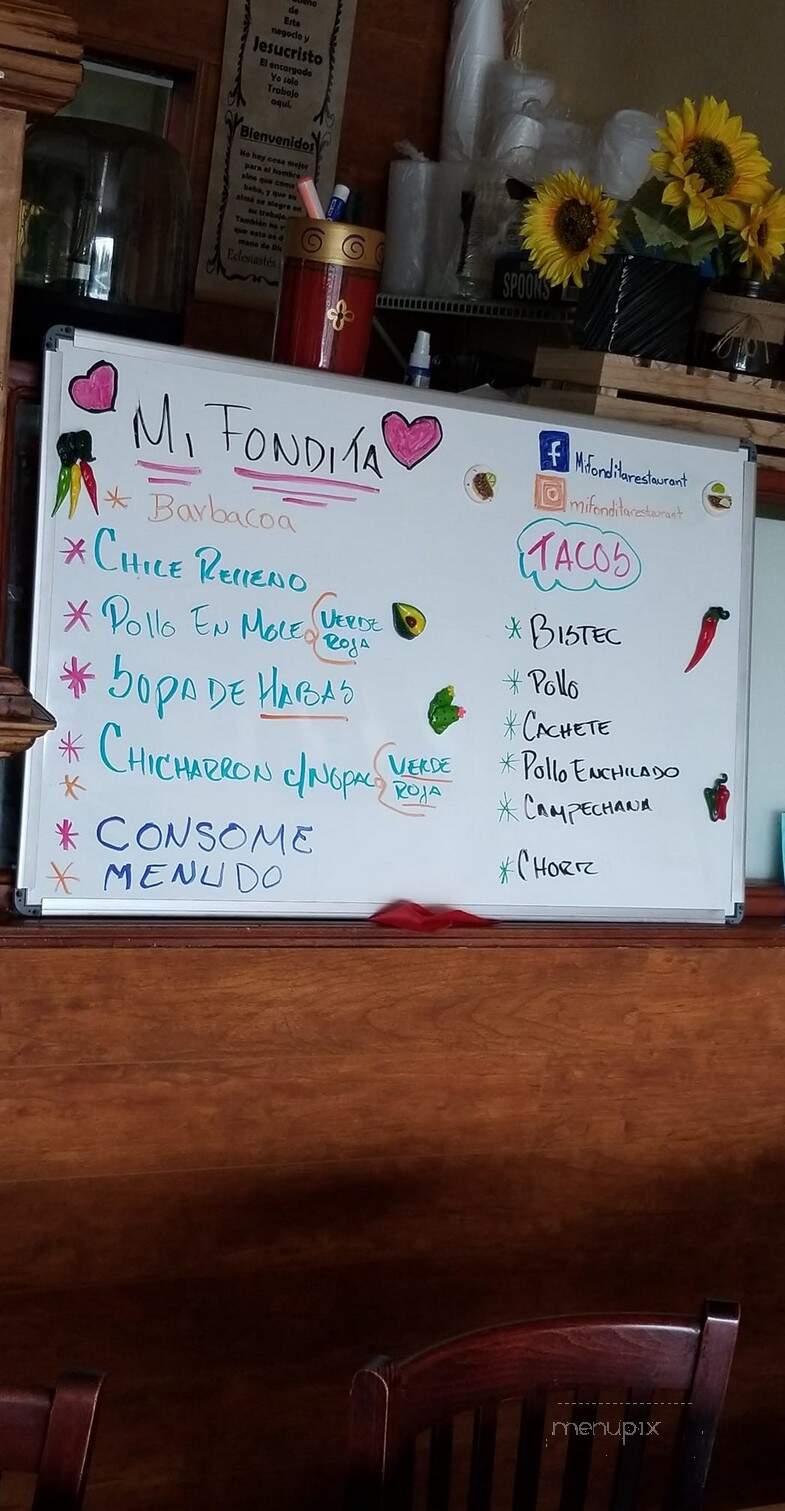 de
Este
negocio y
Jesucristo
El encargado
Yo solo
Trabajo
aquí.
Bienvenidos
No hay cosa mejor
para el hombre
sino que coma
beba, y que su
alma se alegre en
su trabajo.
También
que esto es
mano de
Eclesiastés
SPOONS
MI FONDITA
Mifonditarestaurant
mifonditarestaurant
* Barbacoa
* CHILE RELLENO
* Pollo EN MOLE VERDE
ROJA
* SOPA DE HABAS
* CHICHARRON c/NOPAL VERDE
* ROJA
* CONSOME
* MENUDO
TACOS
* BISTEC
* Pollo
* CACHETE
* Pollo ENCHILADO
* CAMPECHANA
* CHORIZ
menupix